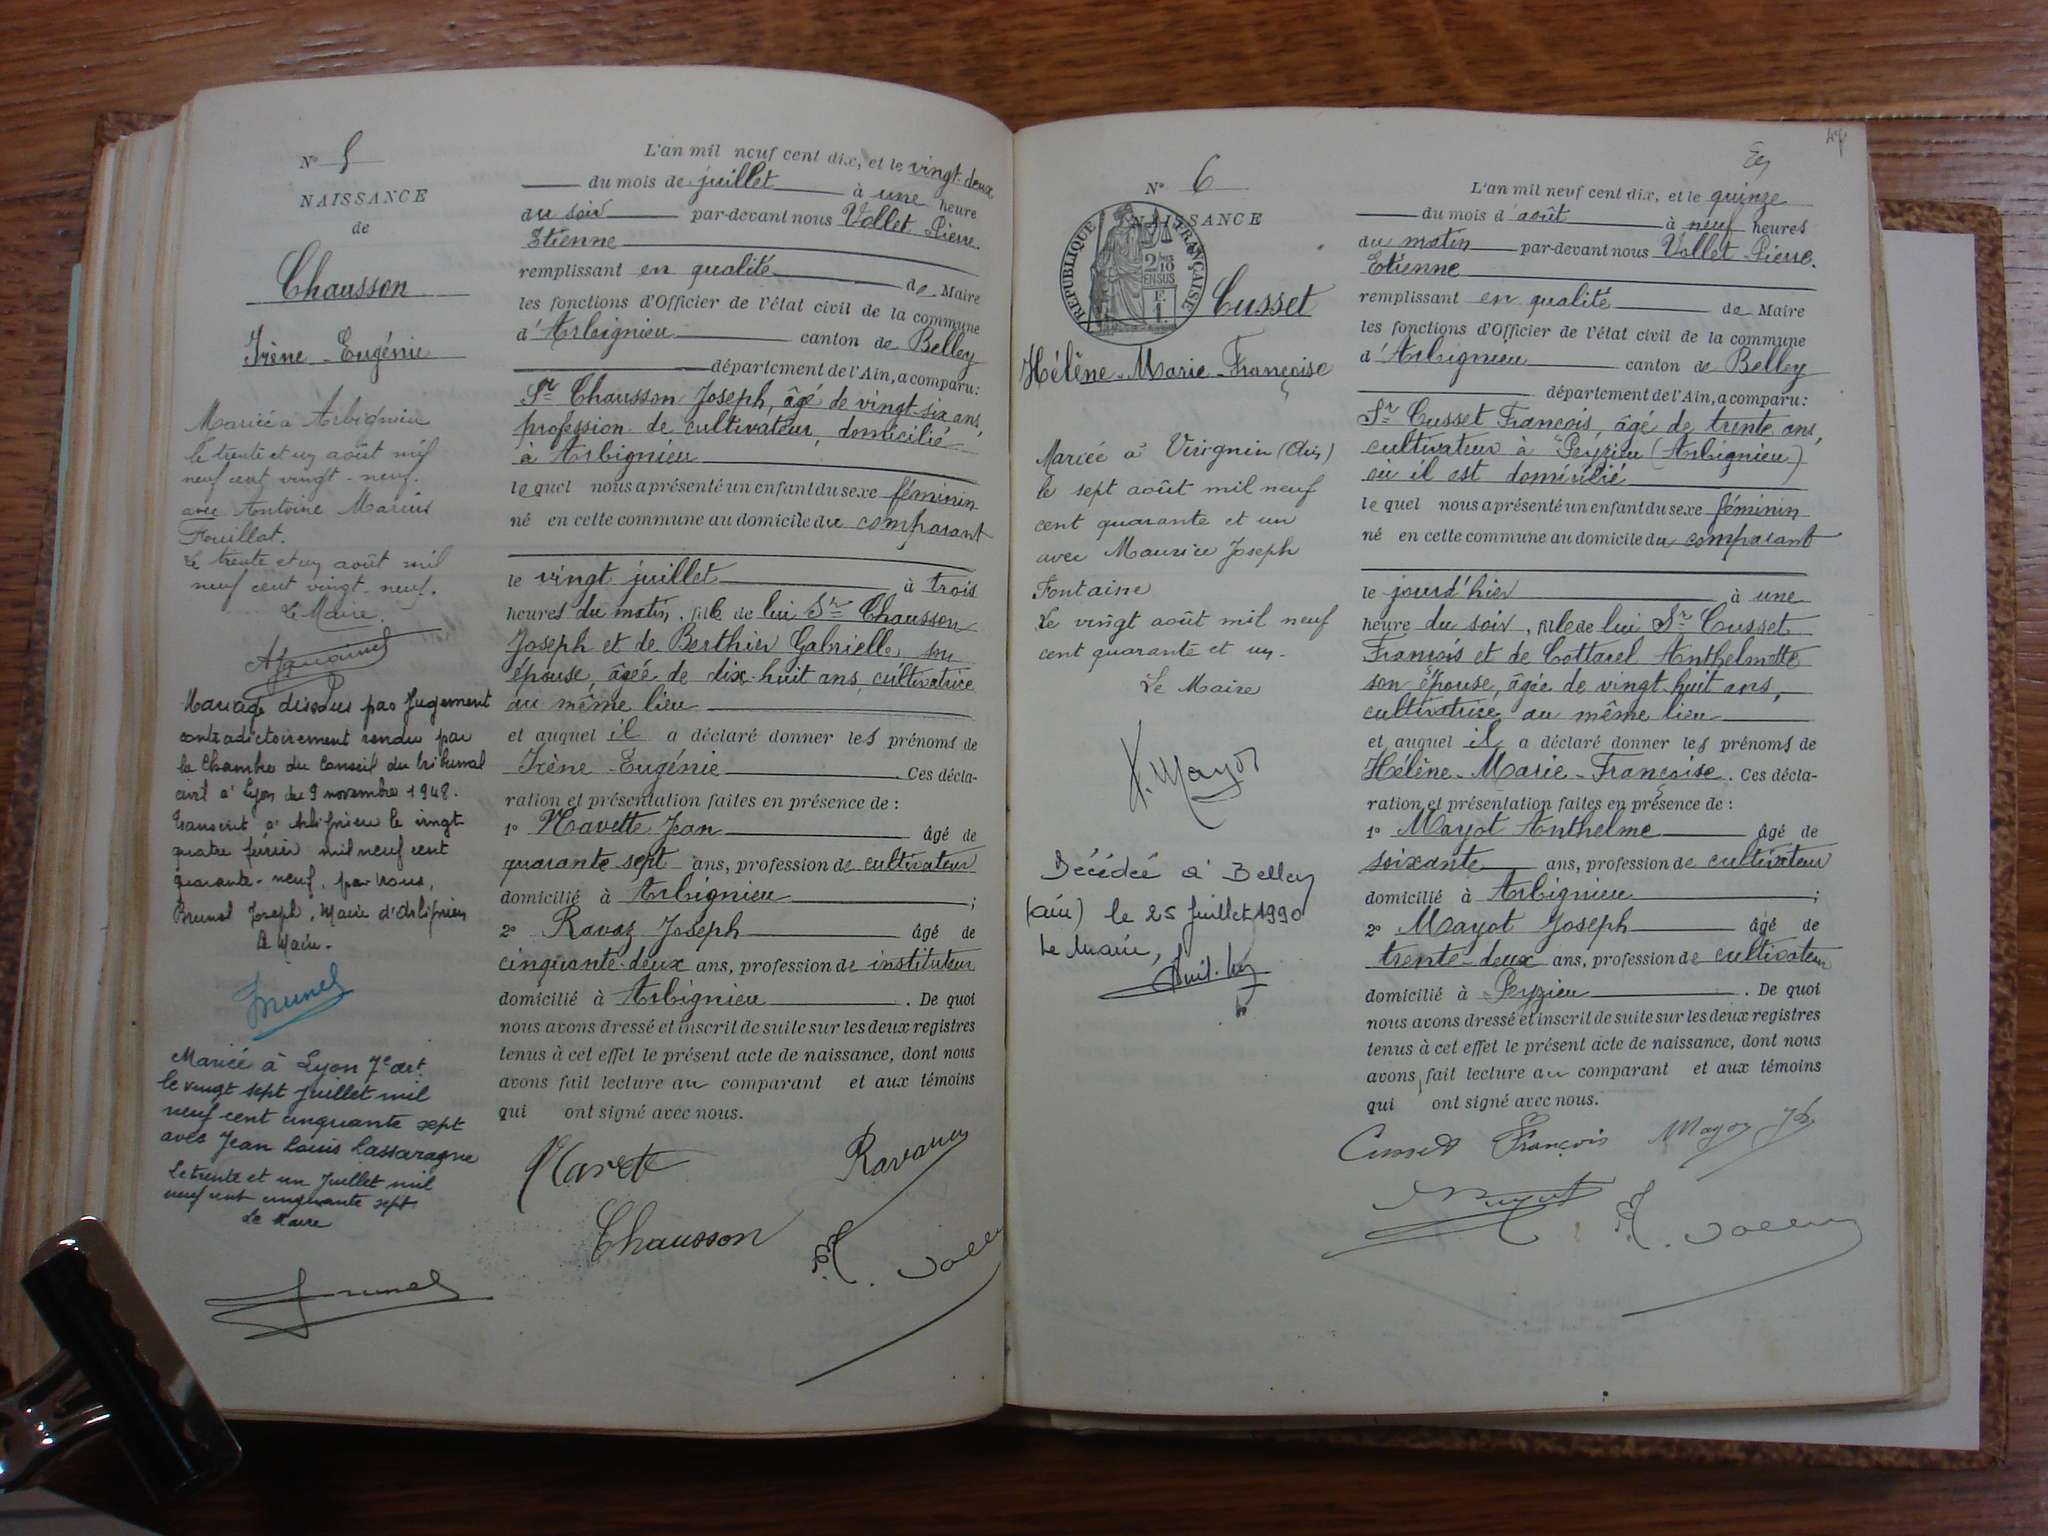 N° 5
NAISSANCE
de
Chausson
Irène-Eugénie
Mariée à Arbignieu
le trente et un août mil
neuf cent vingt-neuf.
avec Antoine Marius
Fouillat.
Le trente et un août mil
neuf cent vingt-neuf.
Le Maire.
Mariage dissous par Jugement
contradictoirement rendu par
la Chambre du Conseil du tribunal
civil à Lyon du 9 novembre 1948.
Transcrit à Arbignieu le vingt
quatre février mil neuf cent
quarante-neuf, par nous,
Brunel Joseph, Maire d'Arbignieu
Le Maire.
Brunel
Mariée à Lyon 7e art.
le vingt sept Juillet mil
neuf cent cinquante sept
avec Jean Louis Lassaragne
Le trente et un Juillet mil
neuf cent cinquante sept
Le Maire
Brunel
L'an mil neuf cent dix, et le vingt-deux
du mois de juillet à une heure
du soir par-devant nous Vollet Pierre
Etienne
remplissant en qualité de Maire
les fonctions d'Officier de l'état civil de la commune
d'Arbignieu canton de Belley
département de l'Ain, a comparu:
Sr Chausson Joseph, âgé de vingt-six ans,
profession de cultivateur, domicilié
à Arbignieu
lequel nous a présenté un enfant du sexe féminin
né en cette commune au domicile du comparant
le vingt juillet à trois
heures du matin, fille de lui Sr Chausson
Joseph et de Berthier Gabrielle, son
épouse, âgée de dix-huit ans, cultivatrice
au même lieu
et auquel il a déclaré donner les prénoms de
Irène-Eugénie. Ces décla-
ration et présentation faites en présence de :
1° Navette Jean âgé de
quarante sept ans, profession de cultivateur
domicilié à Arbignieu ;
2° Ravaz Joseph âgé de
cinquante-deux ans, profession de instituteur
domicilié à Arbignieu. De quoi
nous avons dressé et inscrit de suite sur les deux registres
tenus à cet effet le présent acte de naissance, dont nous
avons fait lecture au comparant et aux témoins
qui ont signé avec nous.
Chausson
N° 6
NAISSANCE
REPUBLIQUE FRANÇAISE
2/10
EN SUS
F.
1.
Cusset
Hélène-Marie-Françoise
Mariée à Virignin (Ain)
le sept août mil neuf
cent quarante et un
avec Maurice Joseph
Fontaine
Le vingt août mil neuf
cent quarante et un.
Le Maire
Décédée à Belley
(ain) le 25 Juillet 1990
Le Maire,
L'an mil neuf cent dix, et le quinze
du mois d'août à neuf heures
du matin par-devant nous Vollet Pierre.
Etienne
remplissant en qualité de Maire
les fonctions d'Officier de l'état civil de la commune
d'Arbignieu canton de Belley
département de l'Ain, a comparu:
Sr Cusset François, âgé de trente ans,
cultivateur à Peyzieu (Arbignieu)
où il est domicilié
lequel nous a présenté un enfant du sexe féminin
né en cette commune au domicile du comparant
le jourd'hier à une
heure du soir, fille de lui Sr Cusset
François et de Cottarel Anthelmette
son épouse, âgée de vingt-huit ans,
cultivatrice au même lieu
et auquel il a déclaré donner les prénoms de
Hélène-Marie-Françoise. Ces décla-
ration et présentation faites en présence de :
1° Mayot Anthelme âgé de
soixante ans, profession de cultivateur
domicilié à Arbignieu ;
2° Mayot Joseph âgé de
trente-deux ans, profession de cultivateur
domicilié à Peyzieu. De quoi
nous avons dressé et inscrit de suite sur les deux registres
tenus à cet effet le présent acte de naissance, dont nous
avons fait lecture au comparant et aux témoins
qui ont signé avec nous.
Cusset François